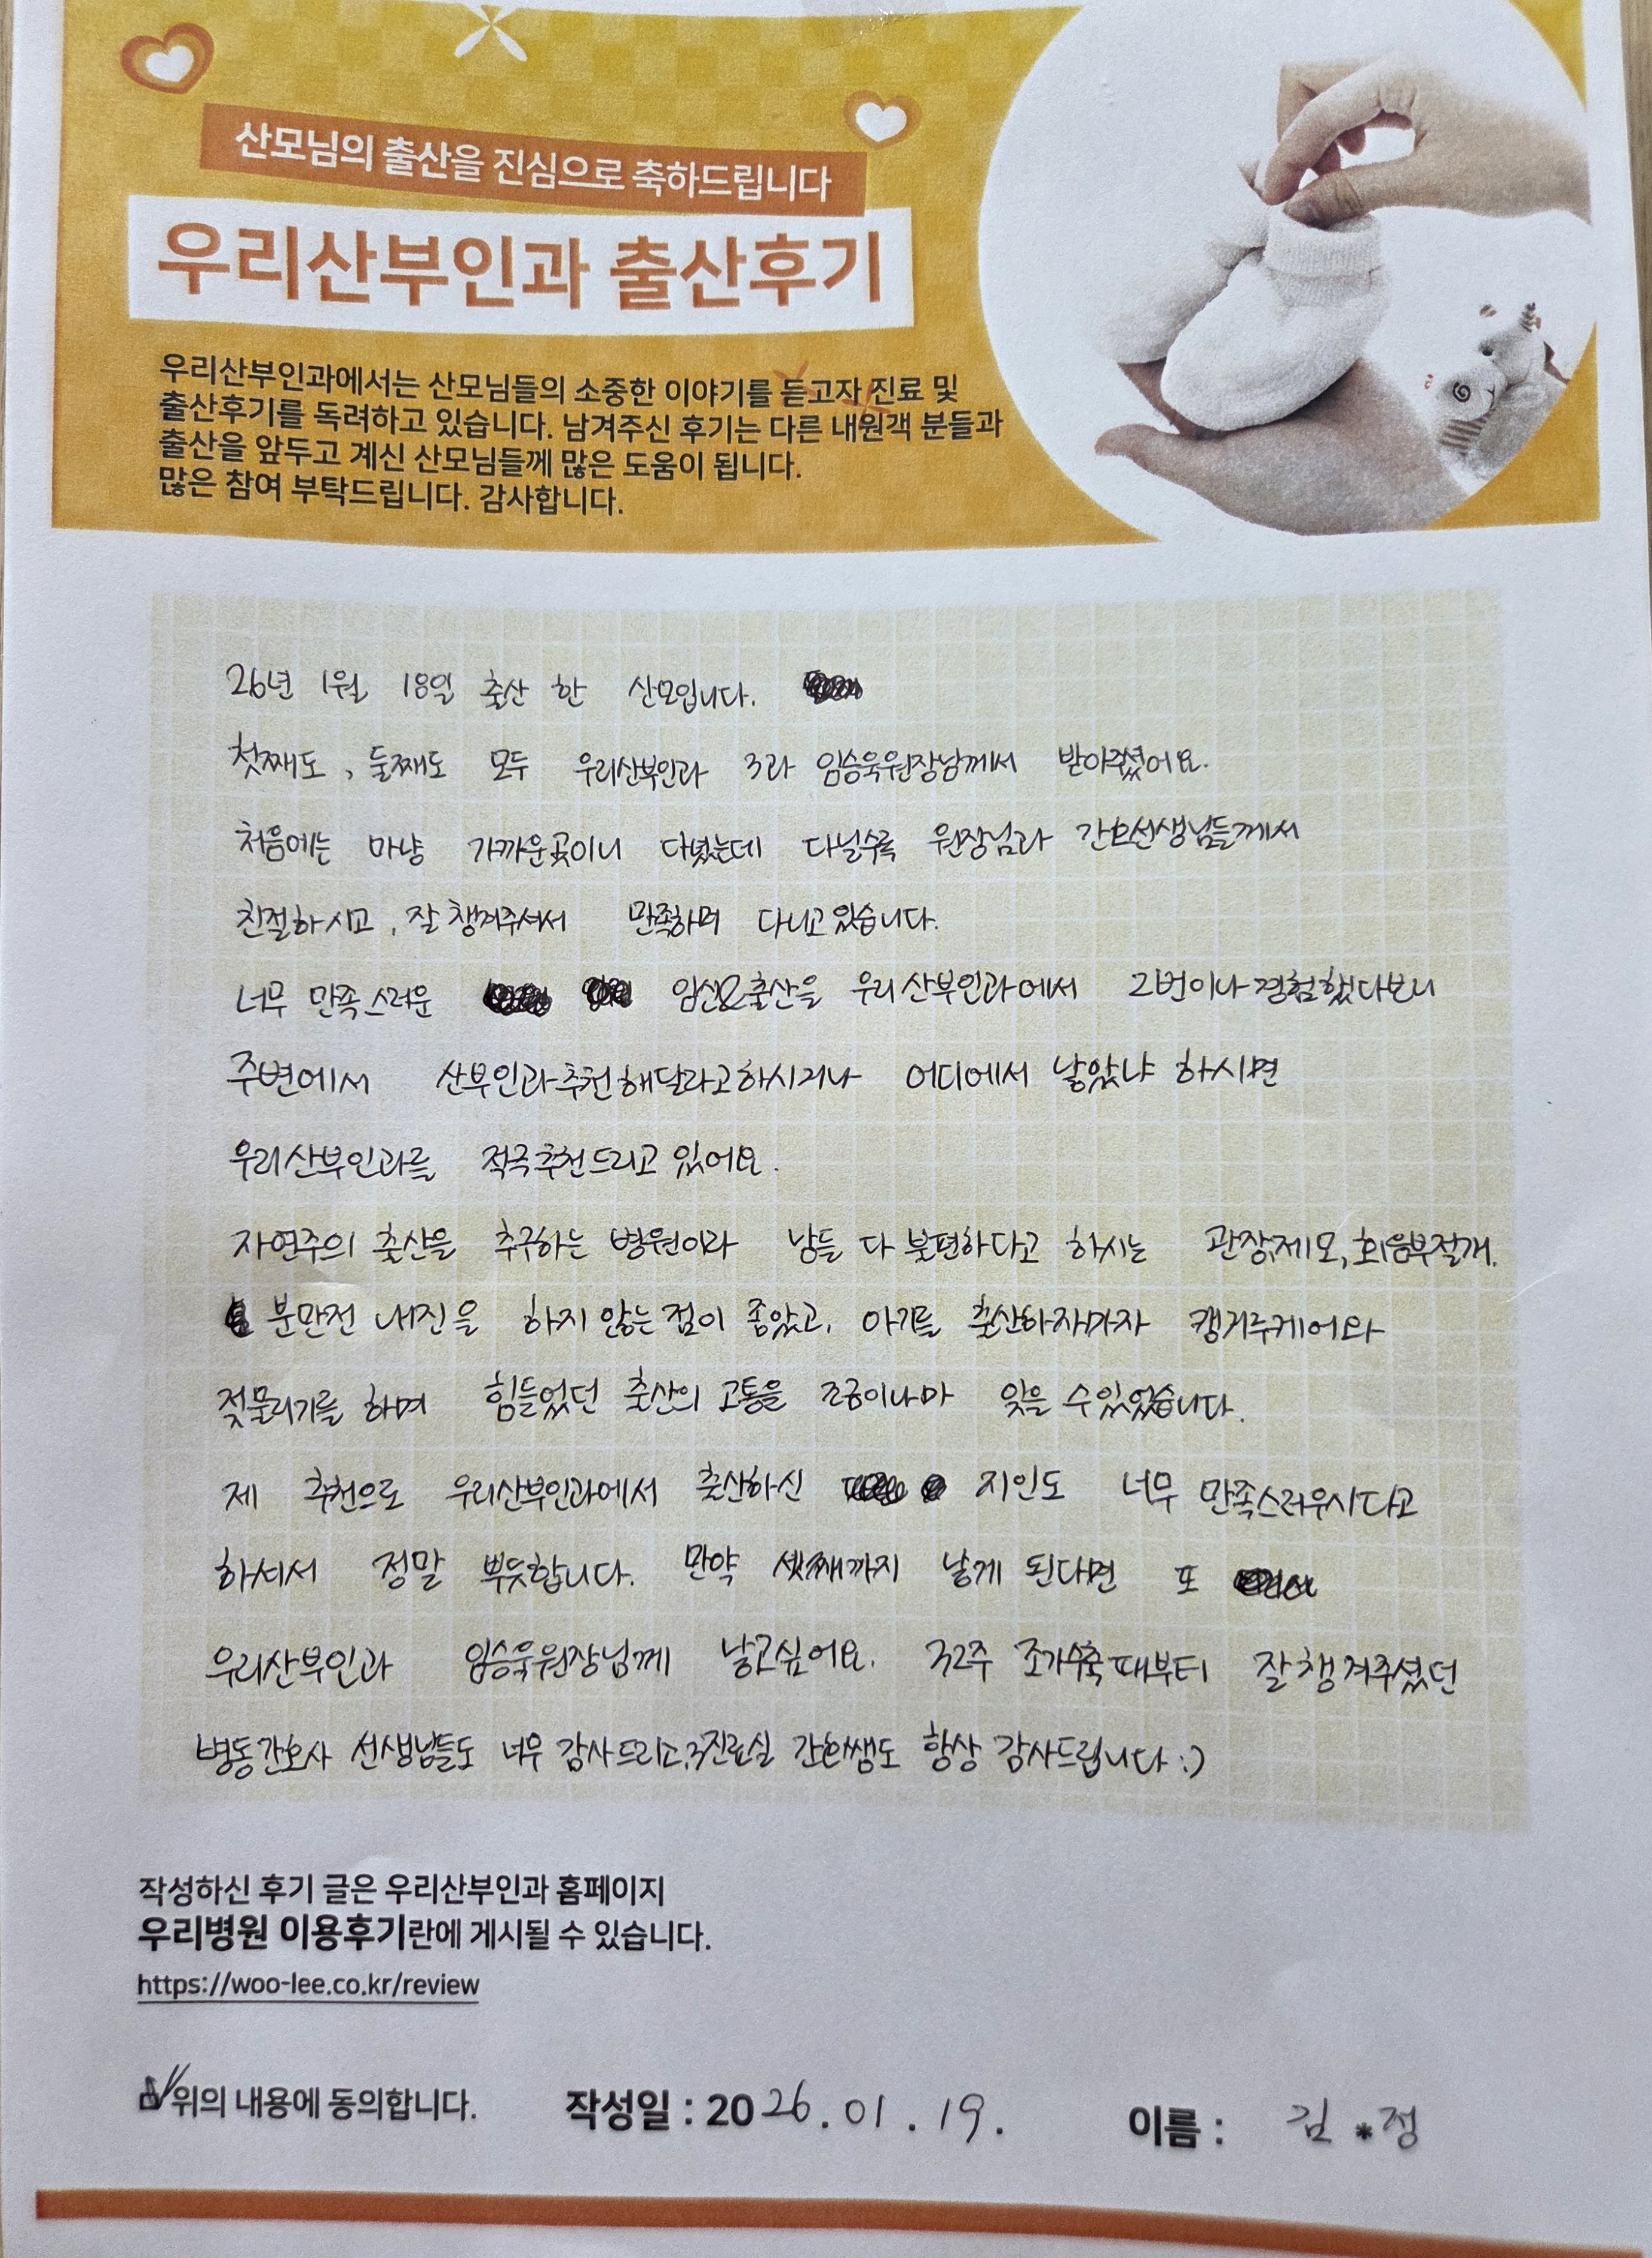 산모님의 출산을 진심으로 축하드립니다
우리산부인과 출산후기
우리산부인과에서는 산모님들의 소중한 이야기를 듣고자 진료 및
출산후기를 독려하고 있습니다. 남겨주신 후기는 다른 내원객 분들과
출산을 앞두고 계신 산모님들께 많은 도움이 됩니다.
많은 참여 부탁드립니다. 감사합니다.
26년 1월 18일 출산 한 산모입니다.
첫째도, 둘째도 모두 우리산부인과 3과 임승욱원장님께서 받아주셨어요.
처음에는 마냥 가까운곳이니 다녔는데 다닐수록 원장님과 간호선생님들께서
친절하시고, 잘 챙겨주셔서 만족하며 다니고 있습니다.
너무 만족스러운 임신&출산을 우리산부인과에서 2번이나 경험했다보니
주변에서 산부인과 추천해달라고 하시거나 어디에서 낳았냐 하시면
우리산부인과를 적극추천드리고 있어요.
자연주의 출산을 추구하는 병원이라 남들 다 불편하다고 하시는 관장,제모,회음부절개.
분만전 내진을 하지 않는 점이 좋았고, 아기를 출산하자마자 캥거루케어와
젖물리기를 하며 힘들었던 출산의 고통을 조금이나마 잊을 수 있었습니다.
제 추천으로 우리산부인과에서 출산하신 지인도 너무 만족스러우시다고
하셔서 정말 뿌듯합니다. 만약 셋째까지 낳게 된다면 또
우리산부인과 임승욱원장님께 낳고싶어요. 32주 조기수축때부터 잘 챙겨주셨던
병동간호사 선생님들도 너무 감사드리고,3진료실 간호쌤도 항상 감사드립니다 :)
작성하신 후기 글은 우리산부인과 홈페이지
우리병원 이용후기란에 게시될 수 있습니다.
https://woo-lee.co.kr/review
위의 내용에 동의합니다. 작성일 : 2026.01.19. 이름 : 김*정